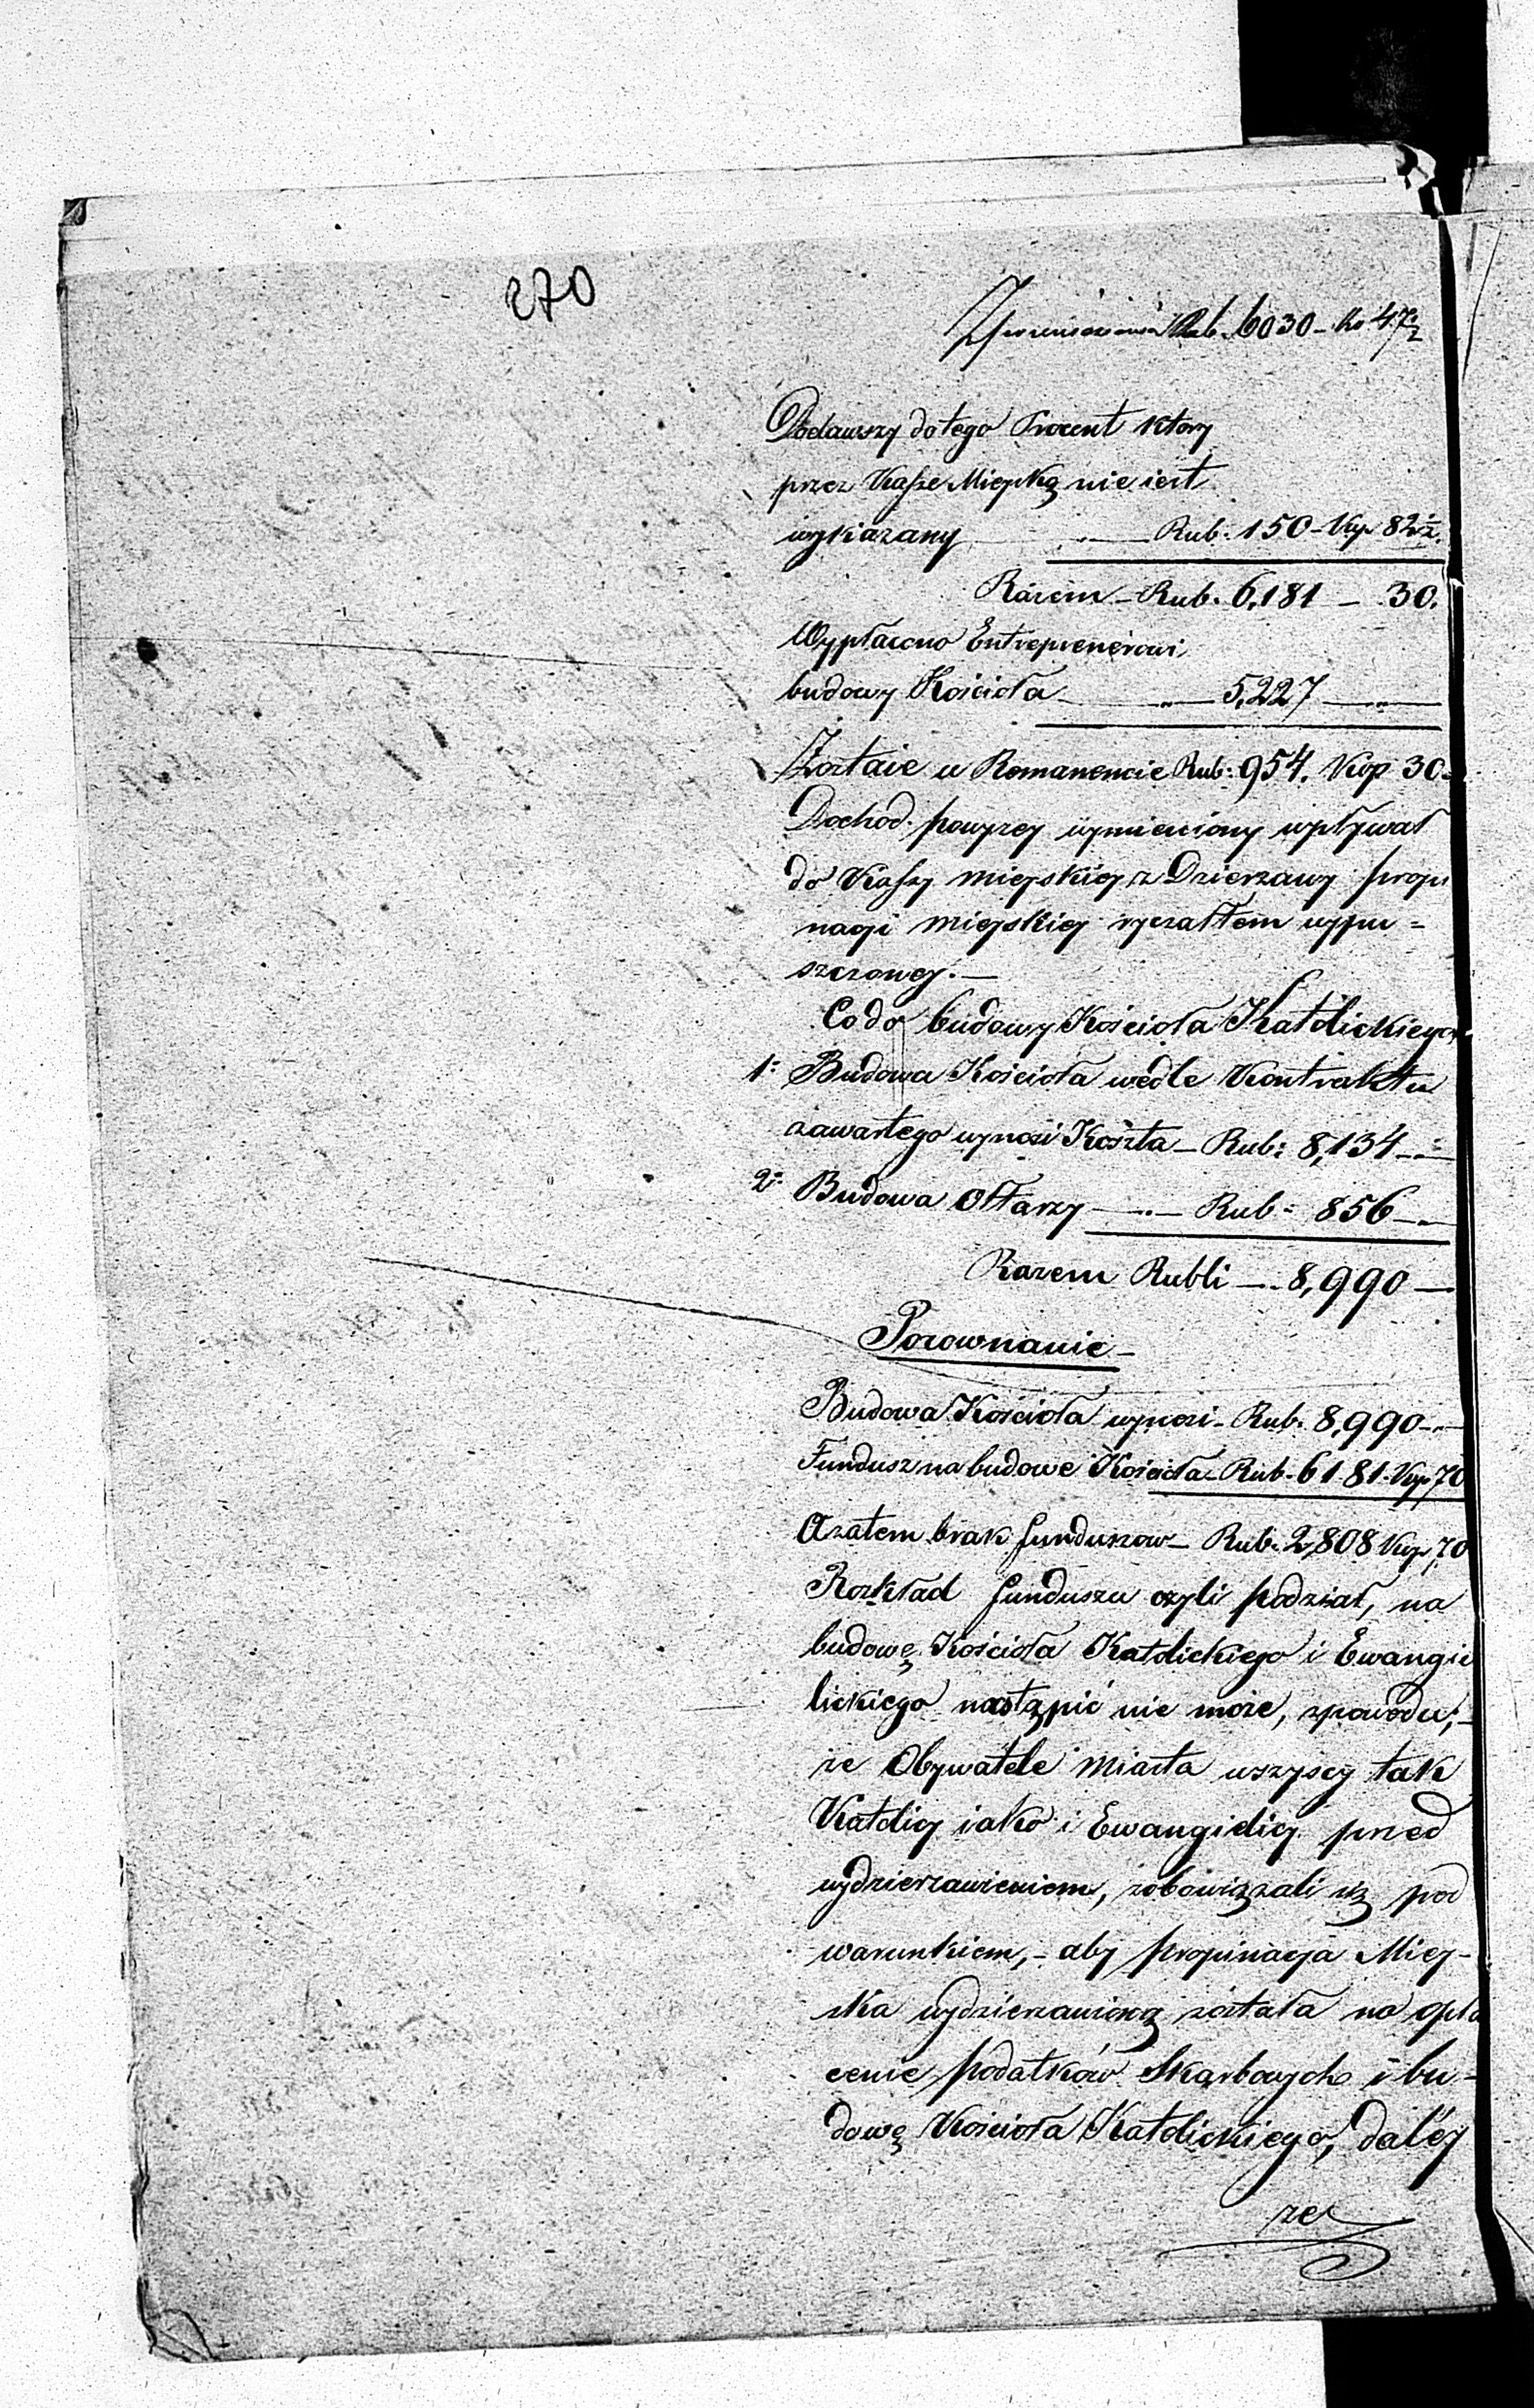 270
Z przeniesienia Rub. 6030 - Ko 47½
Dodawszy do tego Procent ktory
przez Kaſse Mieyską nie iest
wykazany ——— Rub: 150 - Kop 82½.
Razem — Rub. 6,181 — 30.
Wypłacono Entreprenerowi
budowy Kościoła ——„—— 5,227 ——„——
Zostaie w Remanencie Rub: 954. Kop 30
Dochod powyzey wymieniony wpływał
do Kaſsy mieyskiey z Dzierzawy propi
nacyi mieyskiey ryczałtem wypu=
szczoney. —
Co do budowy Kościoła Katolickiego
1: Budowa Kościoła wedle Kontraktu
zawartego wynosi Koszta — Rub: 8,134 —„—
2: Budowa Ołtarzy —„— Rub: 856 —„—
Razem Rubli —„ 8,990 —
Porownanie —
Budowa Kościoła wynosi — Rub. 8,990 —„—
Fundusz na budowe Kościoła — Rub. 6181. Kop 70
A zatem brak funduszow — Rub. 2,808 Kop 70
Rozkład funduszu czyli podział, na
budowę Kościoła Katolickiego i Ewangie
lickiego nastąpić nie może, z powodu, —
że Obywatele Miasta wszyscy tak
Katolicy iako i Ewangielicy przed
wydzierzawieniem, zobowiązali się pod
warunkiem, — aby propinacya Miey-
ska wydzierzawioną została na opła
cenie podatków Skarbowych i bu=
dowę Kościoła Katolickiego, daléy
ze